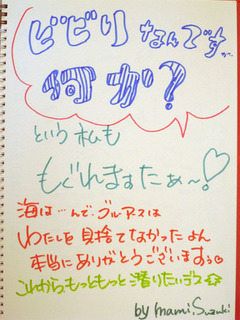 ビビリなんですが…
何か？
という私も
もぐれますたぁ～！♡
海は…んで、ブルアスは
わたしを見捨てなかったよん
本当にありがとうございます。
これからもっともっと潜りたいデス☆
by mami.Suzuki